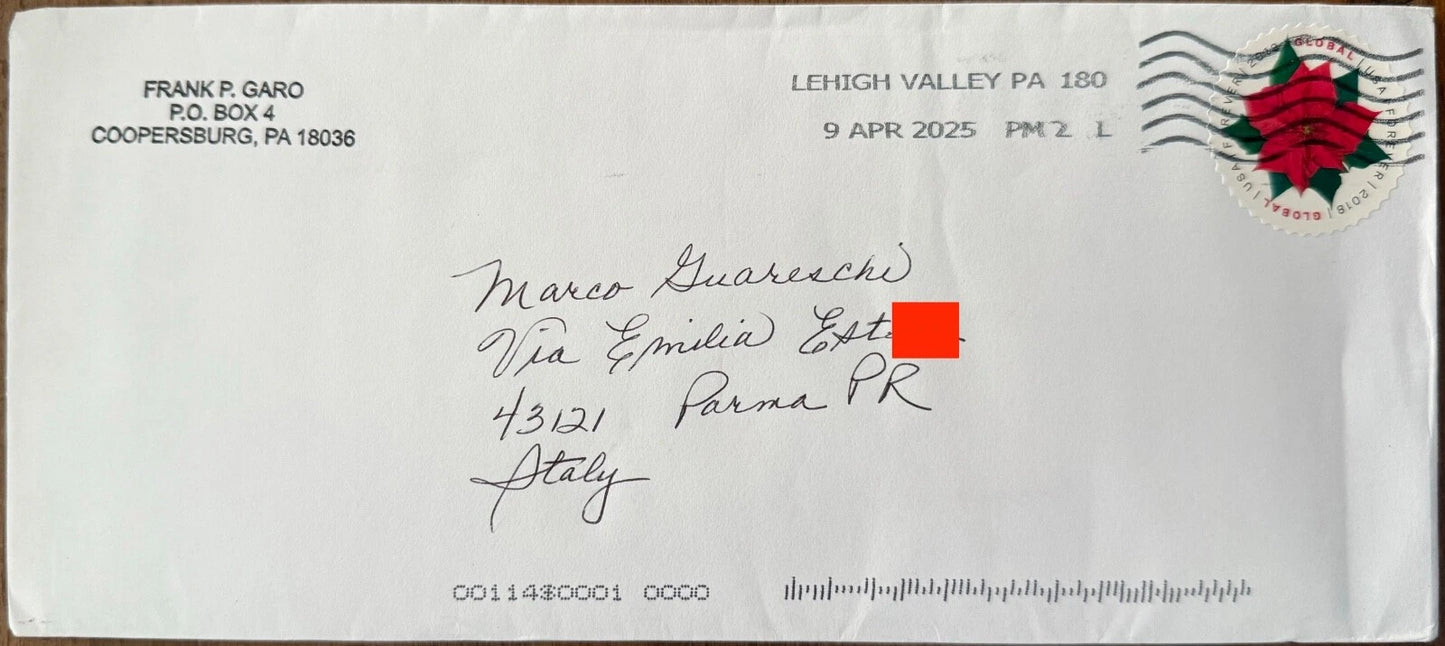 FRANK P. GARO
P.O. BOX 4
COOPERSBURG, PA 18036
LEHIGH VALLEY PA 180
9 APR 2025 PM 2 L
GLOBAL | USA FOREVER | 2018 | GLOBAL | USA FOREVER | 2018 |
Marco Guareschi
Via Emilia
43121 Parma PR
Italy
00114$0001 0000